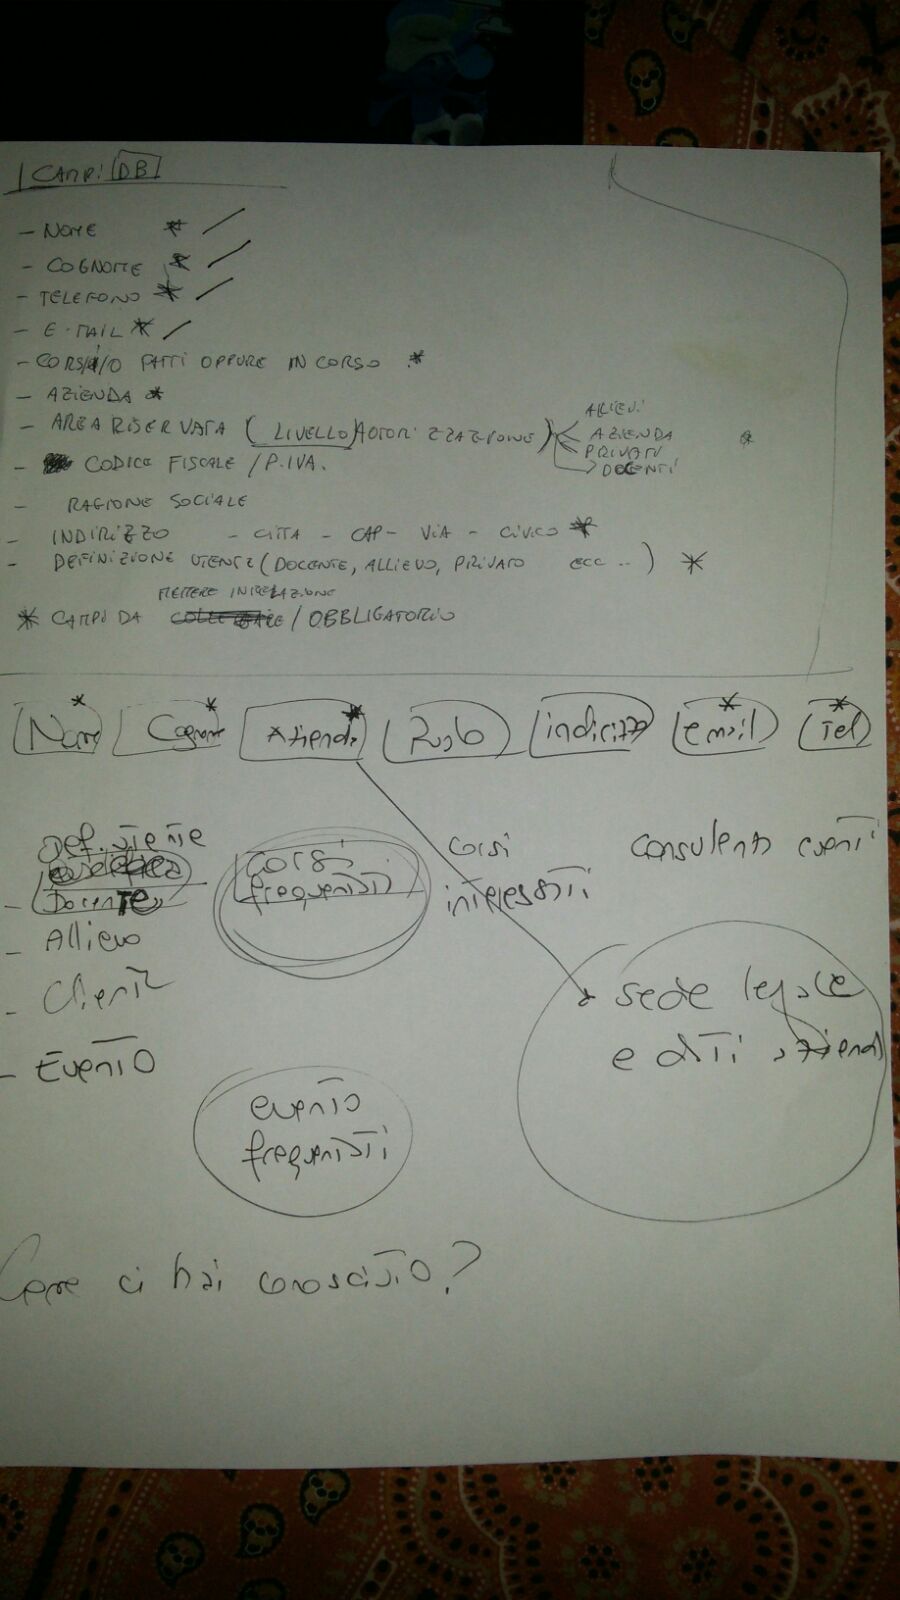 CAMPI DB
- NOME * /
- COGNOME * /
- TELEFONO * /
- E-MAIL * /
- CORSI/O FATTI OPPURE IN CORSO *
- AZIENDA *
- AREA RISERVATA (LIVELLO AUTORIZZAZIONE) *
ALLIEVI
AZIENDA
PRIVATI
DOCENTI
- CODICE FISCALE / P.IVA.
- RAGIONE SOCIALE
- INDIRIZZO - CITTA - CAP - VIA - CIVICO *
- DEFINIZIONE UTENTE (DOCENTE, ALLIEVO, PRIVATO ECC ..) *
METTERE IN RELAZIONE
* CAMPI DA / OBBLIGATORIO
Nome * Cognome * Azienda * Ruolo indirizzo email * Tel *
Def. utente
- Docente
- Allievo
- Clienti
- Evento
corsi
frequentati
corsi
interessati
consulenti eventi
sede legale
e dati azienda
evento
frequentati
Come ci hai conosciuto?